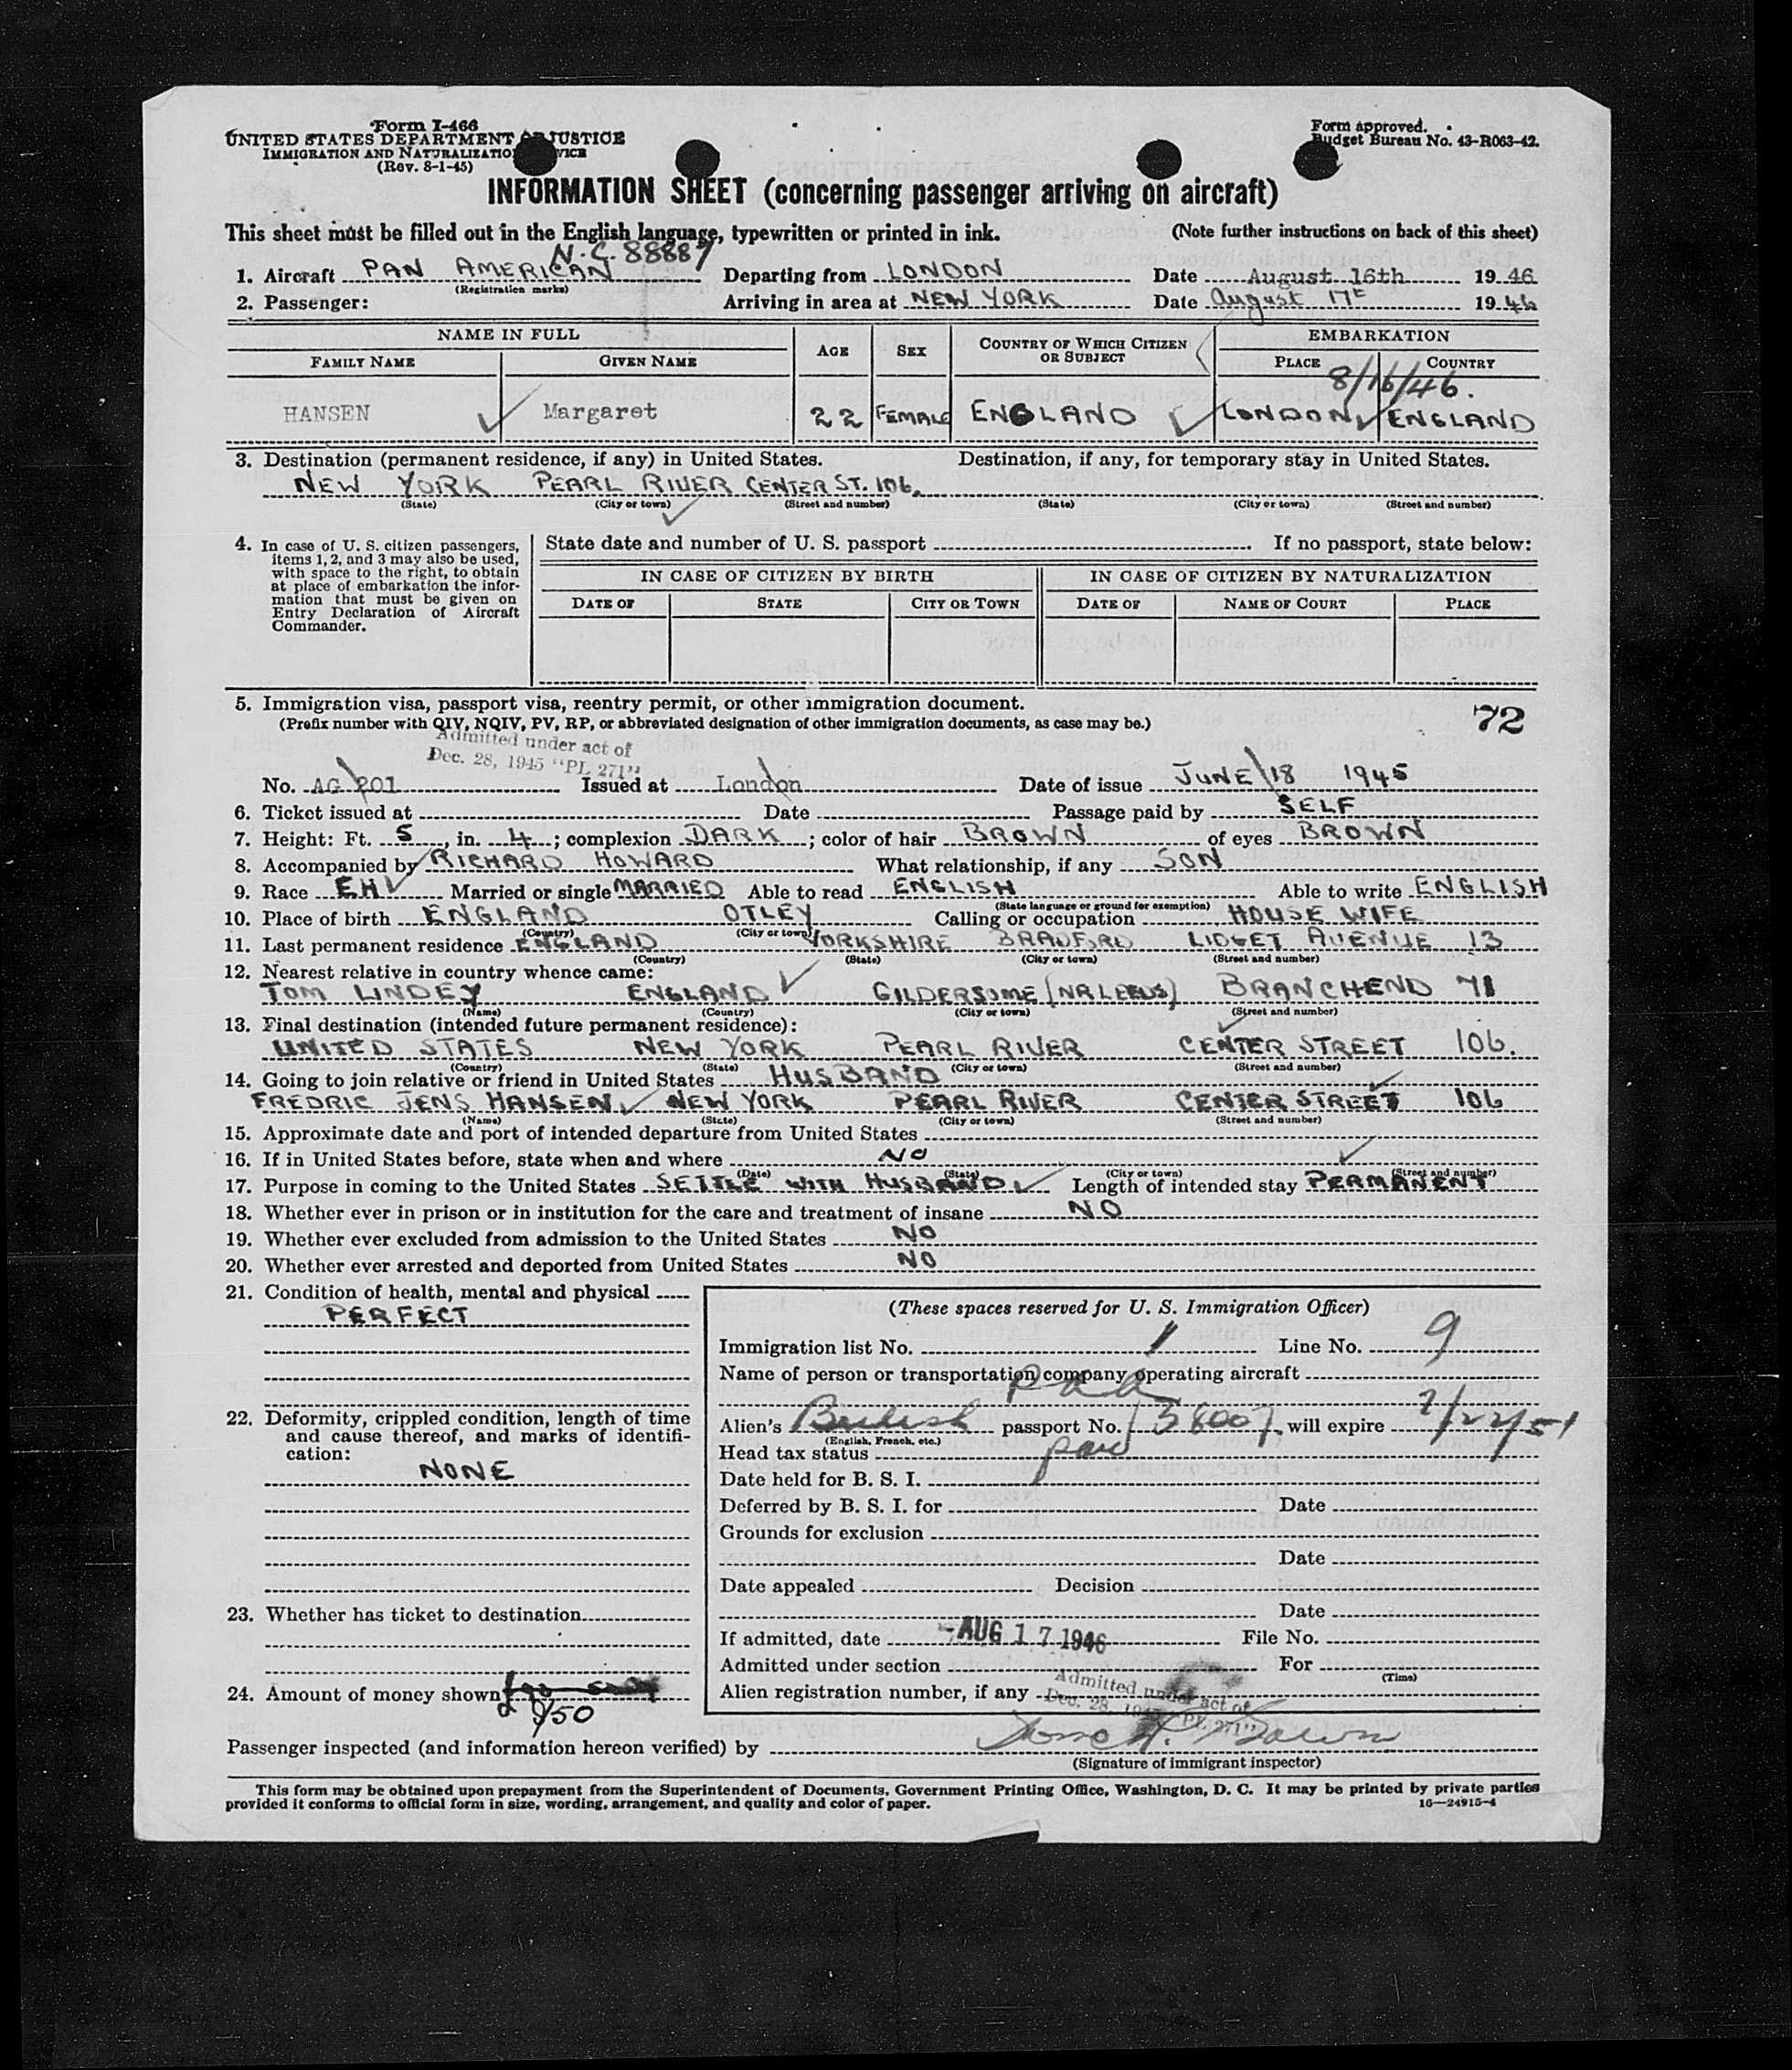 Form I-466
UNITED STATES DEPARTMENT OF JUSTICE
IMMIGRATION AND NATURALIZATION SERVICE
(Rev. 8-1-45)
Form approved.
Budget Bureau No. 43-R063-42.
INFORMATION SHEET (concerning passenger arriving on aircraft)
This sheet must be filled out in the English language, typewritten or printed in ink. (Note further instructions on back of this sheet)
N.C. 88887
1. Aircraft PAN AMERICAN Departing from LONDON Date August 16th 1946
(Registration marks)
2. Passenger: Arriving in area at NEW YORK Date August 17t 1946
NAME IN FULL AGE SEX COUNTRY OF WHICH CITIZEN OR SUBJECT EMBARKATION
FAMILY NAME GIVEN NAME PLACE COUNTRY
8/16/46.
HANSEN Margaret 22 FEMALE ENGLAND LONDON ENGLAND
3. Destination (permanent residence, if any) in United States. Destination, if any, for temporary stay in United States.
NEW YORK PEARL RIVER CENTER ST. 106.
(State) (City or town) (Street and number) (State) (City or town) (Street and number)
4. In case of U. S. citizen passengers, items 1, 2, and 3 may also be used, with space to the right, to obtain at place of embarkation the information that must be given on Entry Declaration of Aircraft Commander.
State date and number of U. S. passport . If no passport, state below:
IN CASE OF CITIZEN BY BIRTH IN CASE OF CITIZEN BY NATURALIZATION
DATE OF STATE CITY OR TOWN DATE OF NAME OF COURT PLACE
5. Immigration visa, passport visa, reentry permit, or other immigration document.
(Prefix number with QIV, NQIV, PV, RP, or abbreviated designation of other immigration documents, as case may be.)
72
Admitted under act of
Dec. 28, 1945 "PL 271"
No. AG 201 Issued at London Date of issue JUNE 18 1945
6. Ticket issued at Date Passage paid by SELF
7. Height: Ft. 5, in. 4; complexion DARK; color of hair BROWN of eyes BROWN
8. Accompanied by RICHARD HOWARD What relationship, if any SON
9. Race EH Married or single MARRIED Able to read ENGLISH Able to write ENGLISH
(State language or ground for exemption)
10. Place of birth ENGLAND OTLEY Calling or occupation HOUSE WIFE
(Country) (City or town)
11. Last permanent residence ENGLAND YORKSHIRE BRADFORD LIDGET AVENUE 13
(Country) (State) (City or town) (Street and number)
12. Nearest relative in country whence came:
TOM LINDEY ENGLAND GILDERSOME (NR LEEDS) BRANCHEND 71
(Name) (Country) (City or town) (Street and number)
13. Final destination (intended future permanent residence):
UNITED STATES NEW YORK PEARL RIVER CENTER STREET 106.
(Country) (State) (City or town) (Street and number)
14. Going to join relative or friend in United States HUSBAND
FREDRIC JENS HANSEN NEW YORK PEARL RIVER CENTER STREET 106
(Name) (State) (City or town) (Street and number)
15. Approximate date and port of intended departure from United States
16. If in United States before, state when and where NO
(Date) (State) (City or town) (Street and number)
17. Purpose in coming to the United States SETTLE WITH HUSBAND Length of intended stay PERMANENT
18. Whether ever in prison or in institution for the care and treatment of insane NO
19. Whether ever excluded from admission to the United States NO
20. Whether ever arrested and deported from United States NO
21. Condition of health, mental and physical
PERFECT
22. Deformity, crippled condition, length of time and cause thereof, and marks of identification:
NONE
23. Whether has ticket to destination
24. Amount of money shown
$50
(These spaces reserved for U. S. Immigration Officer)
Immigration list No. 1 Line No. 9
Name of person or transportation company operating aircraft
P a a
Alien's British passport No. 38007 will expire 2/22/51
(English, French, etc.)
Head tax status
Date held for B. S. I.
Deferred by B. S. I. for Date
Grounds for exclusion
Date
Date appealed Decision
Date
If admitted, date AUG 17 1946 File No.
Admitted under section For
(Time)
Alien registration number, if any
Admitted under act of
Dec. 28, 1945 "PL 271"
Passenger inspected (and information hereon verified) by
(Signature of immigrant inspector)
This form may be obtained upon prepayment from the Superintendent of Documents, Government Printing Office, Washington, D. C. It may be printed by private parties
provided it conforms to official form in size, wording, arrangement, and quality and color of paper. 16—24915-4